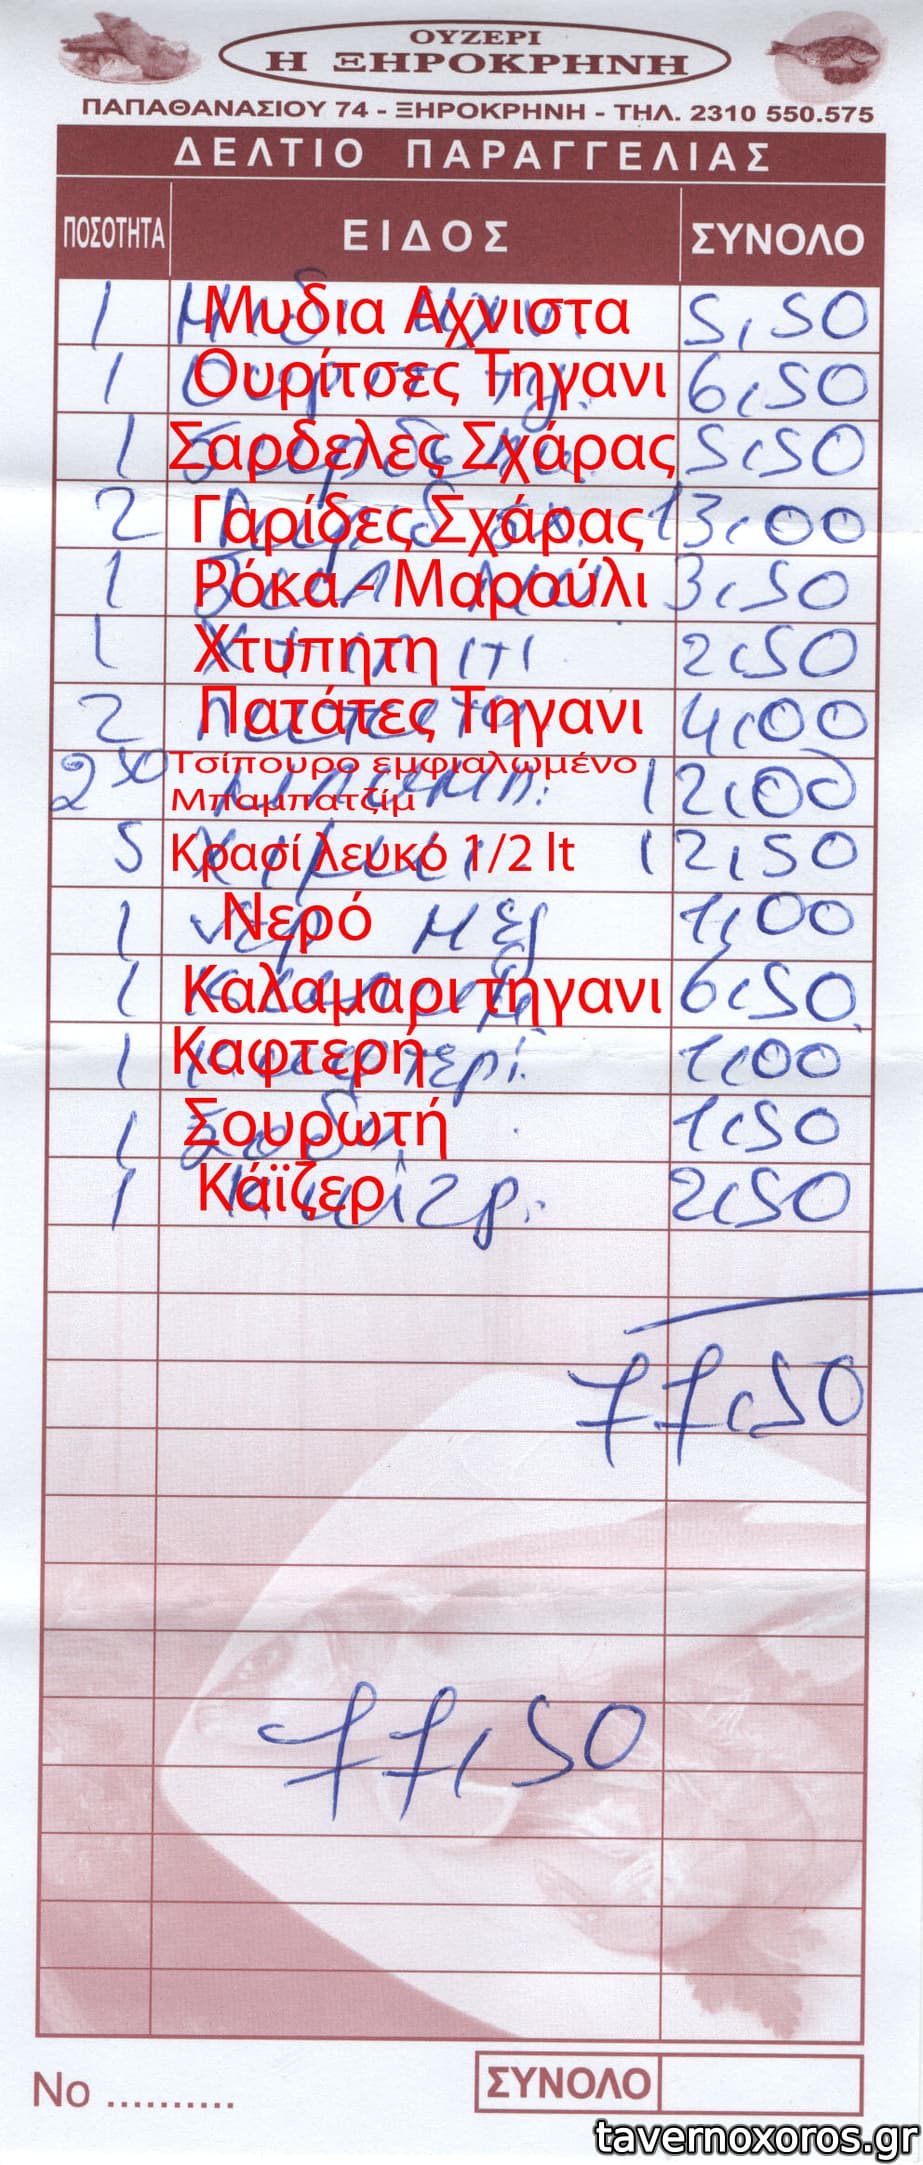 ΟΥΖΕΡΙ
Η ΞΗΡΟΚΡΗΝΗ
ΠΑΠΑΘΑΝΑΣΙΟΥ 74 - ΞΗΡΟΚΡΗΝΗ - ΤΗΛ. 2310 550.575
ΔΕΛΤΙΟ ΠΑΡΑΓΓΕΛΙΑΣ
ΠΟΣΟΤΗΤΑ ΕΙΔΟΣ ΣΥΝΟΛΟ
1 Μυδια Αχνιστα 5,50
1 Ουρίτσες Τηγανι 6,50
1 Σαρδελες Σχάρας 5,50
2 Γαρίδες Σχάρας 13,00
1 Ρόκα - Μαρούλι 3,50
1 Χτυπητη 2,50
2 Πατάτες Τηγανι 4,00
2 50 Τσίπουρο εμφιαλωμένο 12,00
Μπαμπατζίμ
5 Κρασί λευκό 1/2 lt 12,50
1 Νερό 1,00
1 Καλαμαρι τηγανι 6,50
1 Καφτερή 1,00
1 Σουρωτή 1,50
1 Κάϊζερ 2,50
77,50
77,50
Νο ..........
ΣΥΝΟΛΟ
tavernoxoros.gr